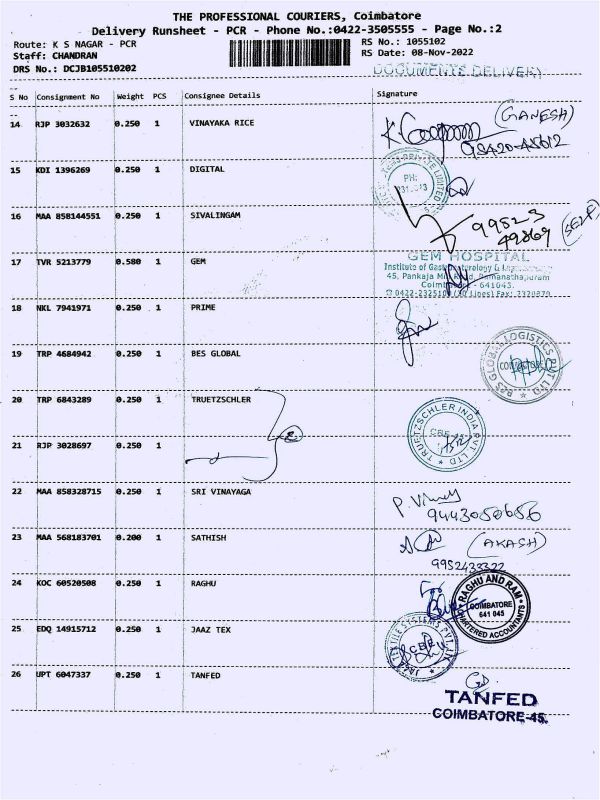 THE PROFESSIONAL COURIERS, Coimbatore
Delivery Runsheet - PCR - Phone No.:0422-3505555 - Page No.:2
Route: K S NAGAR - PCR
RS No.: 1055102
Staff: CHANDRAN
RS Date: 08-Nov-2022
DRS No.: DCJB105510202
DOCUMENTS DELIVERY
S No Consignment No Weight PCS Consignee Details Signature
14 RJP 3032632 0.250 1 VINAYAKA RICE
(GANESH)
15 KDI 1396269 0.250 1 DIGITAL
PH:
16 MAA 858144551 0.250 1 SIVALINGAM
99523
49869
(SELF)
17 TVR 5213779 0.580 1 GEM
GEM HOSPITAL
Institute of
45, Pankaja Mill Road, Ramanathapuram
Coimbatore - 641043.
18 NKL 7941971 0.250 1 PRIME
19 TRP 4684942 0.250 1 BES GLOBAL
BES GLOBAL LOGISTICS PVT LTD
COIMBATORE
20 TRP 6843289 0.250 1 TRUETZSCHLER
TRUETZSCHLER INDIA PVT LTD
CBE-45
21 RJP 3028697 0.250 1
22 MAA 858328715 0.250 1 SRI VINAYAGA
9443050656
23 MAA 568183701 0.200 1 SATHISH
(AKASH)
9952433322
24 KOC 60520508 0.250 1 RAGHU
For
RAGHU AND RAM
COIMBATORE
641 045
CHARTERED ACCOUNTANTS
25 EDQ 14915712 0.250 1 JAAZ TEX
CBE
26 UPT 6047337 0.250 1 TANFED
TANFED
COIMBATORE-45.